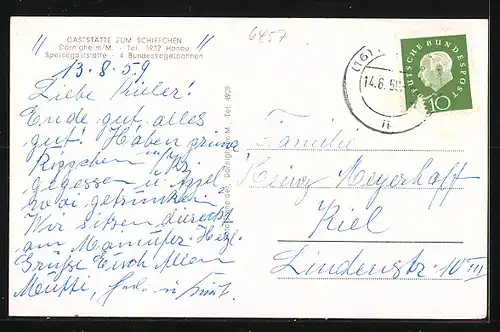 GASTSTÄTTE ZUM SCHIFFCHEN
Dörnigheim/M. - Tel. 1932 Hanau
Speisegaststätte - 4 Bundeskegelbahnen
6457
13.8.59
Liebe Kieler!
Ende gut, alles
gut! Haben prima
Rippchen
gegessen u.
getrunken
Wir sitzen direkt
am Mainufer. Herzl.
Grüße Euch Allen
Mutti,
(16)
14.8.59
DEUTSCHE BUNDESPOST
10
Familie
Heinz Meyerhoff
Kiel
Lindenstr. 10 III
Dörnigheim/M. Tel. 4959